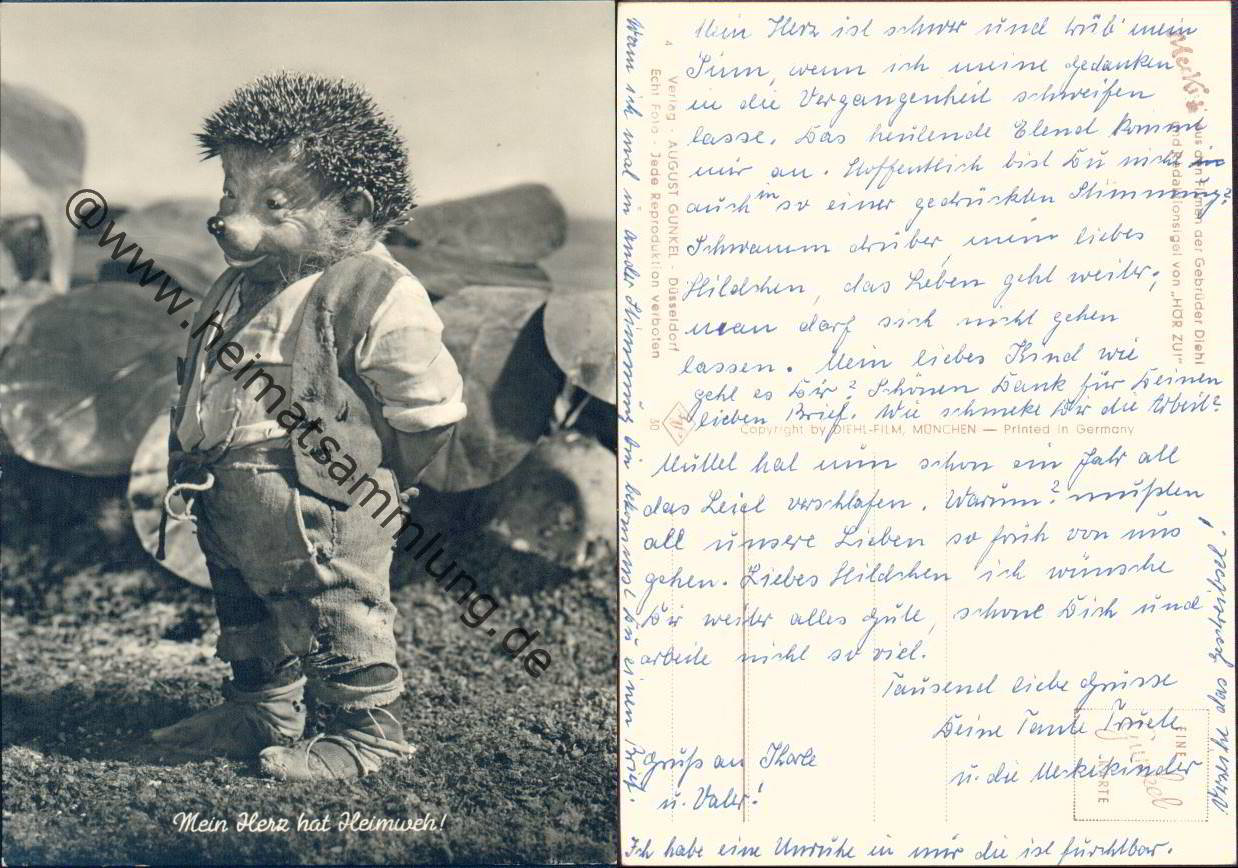 @www.heimatsammlung.de
Mein Herz hat Heimweh!
Mein Herz ist schwer und trüb mein
Sinn, wenn ich meine Gedanken
in die Vergangenheit schweifen
lasse. Das heulende Elend kommt
mir an. Hoffentlich bist Du nicht
auch in so einer gedrückten Stimmung?
Schwamm drüber, mein liebes
Hildchen, das Leben geht weiter,
man darf sich nicht gehen
lassen. Mein liebes Kind wie
geht es Dir? Schönen Dank für Deinen
lieben Brief. Wie schmeke Dir die Arbeit?
Muttel hat nun schon ein Jahr all
das Leid verschlafen. Warum? mußten
all unsere Lieben so früh von uns
gehen. Liebes Hildchen ich wünsche
Dir weiter alles Gute, schone Dich und
arbeite nicht so viel.
Tausend liebe Grüsse
Deine Tante Trudel
u. die Meckikinder
Gruß an
u. Vater!
Ich habe eine Unruhe in mir die ist furchtbar.
Wann ich mal in andrer Stimmung bin bekommst Du einen Brief.
Verzeihe das Geschreibsel!
4
Verlag · AUGUST GUNKEL · Düsseldorf
Echt Foto · Jede Reproduktion verboten
30
Copyright by DIEHL-FILM, MÜNCHEN — Printed in Germany
aus den Filmen der Gebrüder Diehl
und Redaktionsigel von „HÖR ZU!"
EINE
KARTE